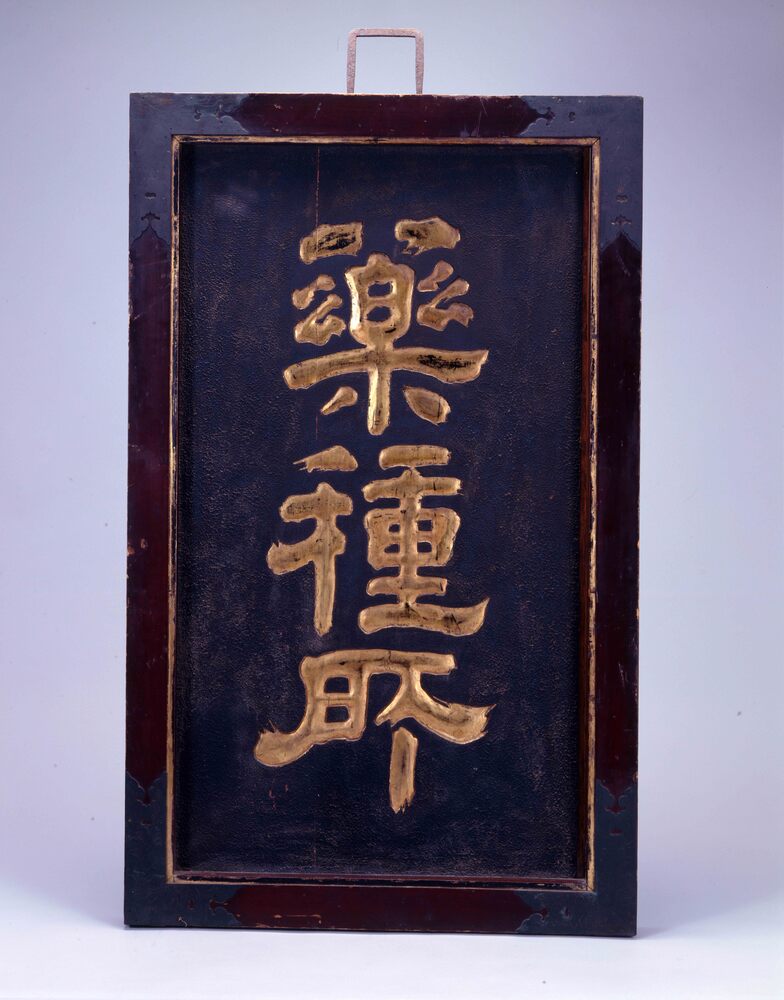 藥種所